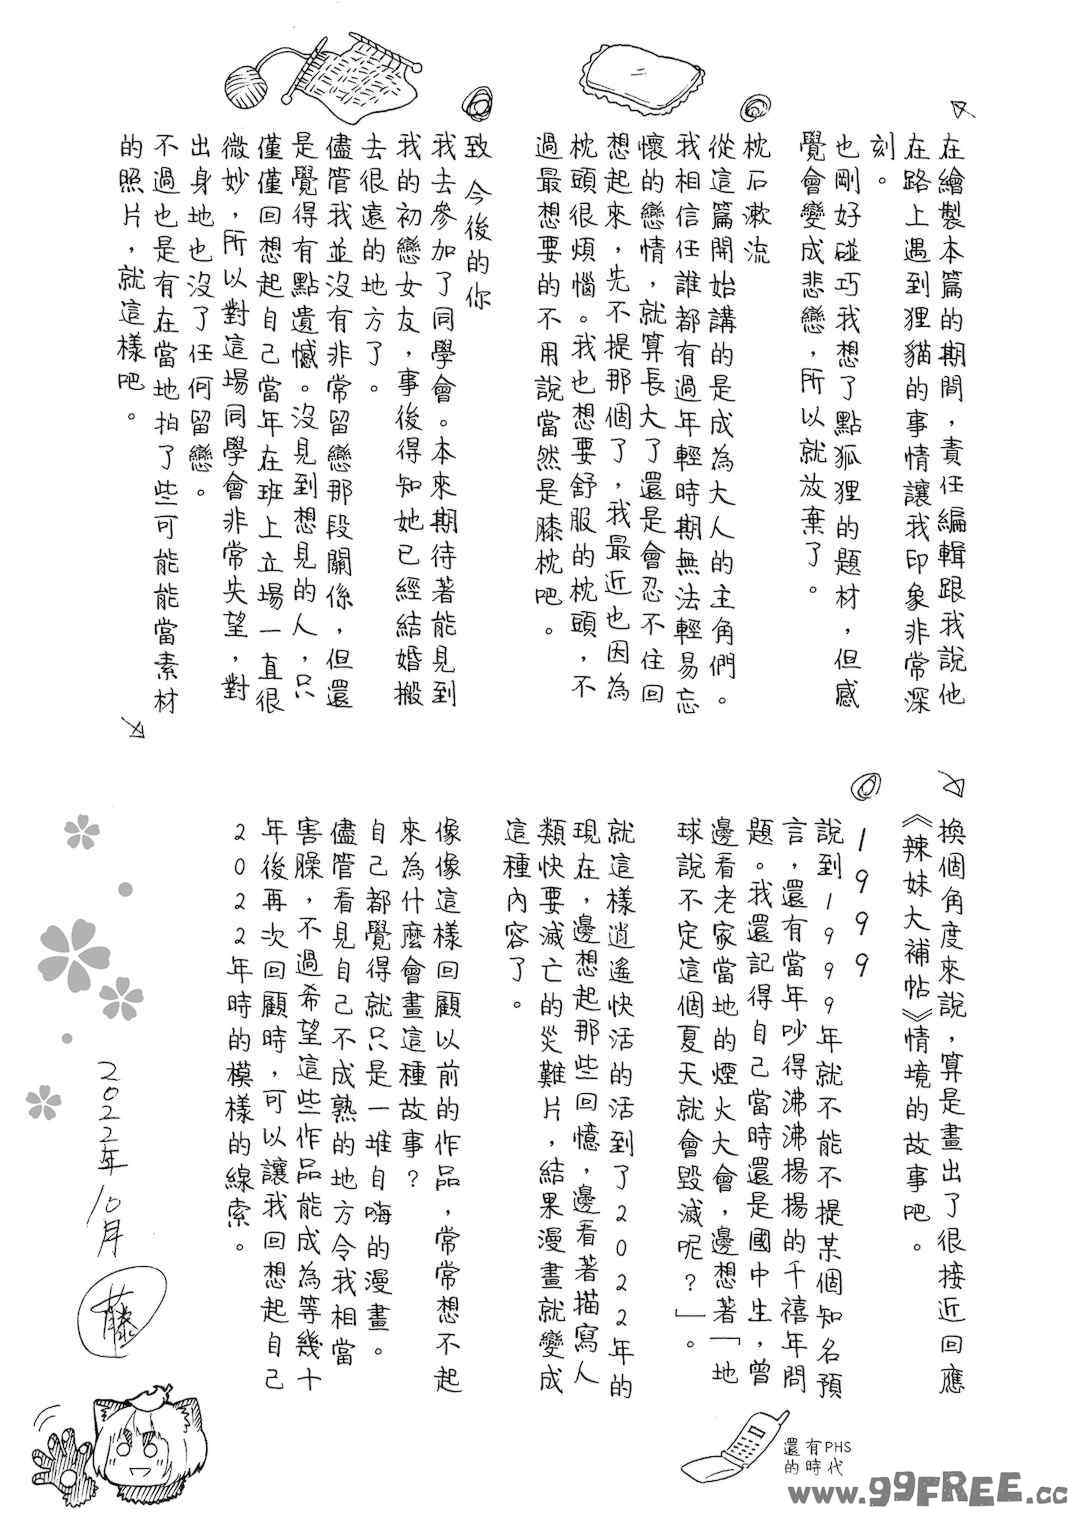 在繪製本篇的期間，責任編輯跟我說他
在路上遇到狸貓的事情讓我印象非常深
刻。
也剛好碰巧我想了點狐狸的題材，但感
覺會變成悲戀，所以就放棄了。
枕石漱流
從這篇開始講的是成為大人的主角們。
我相信任誰都有過年輕時期無法輕易忘
懷的戀情，就算長大了還是會忍不住回
想起來，先不提那個了，我最近也因為
枕頭很煩惱。我也想要舒服的枕頭，不
過最想要的不用說當然是膝枕吧。
致 今後的你
我去參加了同學會。本來期待著能見到
我的初戀女友，事後得知她已經結婚搬
去很遠的地方了。
儘管我並沒有非常留戀那段關係，但還
是覺得有點遺憾。沒見到想見的人，只
僅僅回想起自己當年在班上立場一直很
微妙，所以對這場同學會非常失望，對
出身地也沒了任何留戀。
不過也是有在當地拍了些可能能當素材
的照片，就這樣吧。
換個角度來說，算是畫出了很接近回應
《辣妹大補帖》情境的故事吧。
1999
說到1999年就不能不提某個知名預
言，還有當年吵得沸沸揚揚的千禧年問
題。我還記得自己當時還是國中生，曾
邊看老家當地的煙火大會，邊想著「地
球說不定這個夏天就會毀滅呢？」。
就這樣逍遙快活的活到了2022年的
現在，邊想起那些回憶，邊看著描寫人
類快要滅亡的災難片，結果漫畫就變成
這種內容了。
像像這樣回顧以前的作品，常常想不起
來為什麼會畫這種故事？
自己都覺得就只是一堆自嗨的漫畫。
儘管看見自己不成熟的地方令我相當
害臊，不過希望這些作品能成為等幾十
年後再次回顧時，可以讓我回想起自己
2022年時的模樣的線索。
2022年10月
藤
還有PHS
的時代
www.99FREE.cc